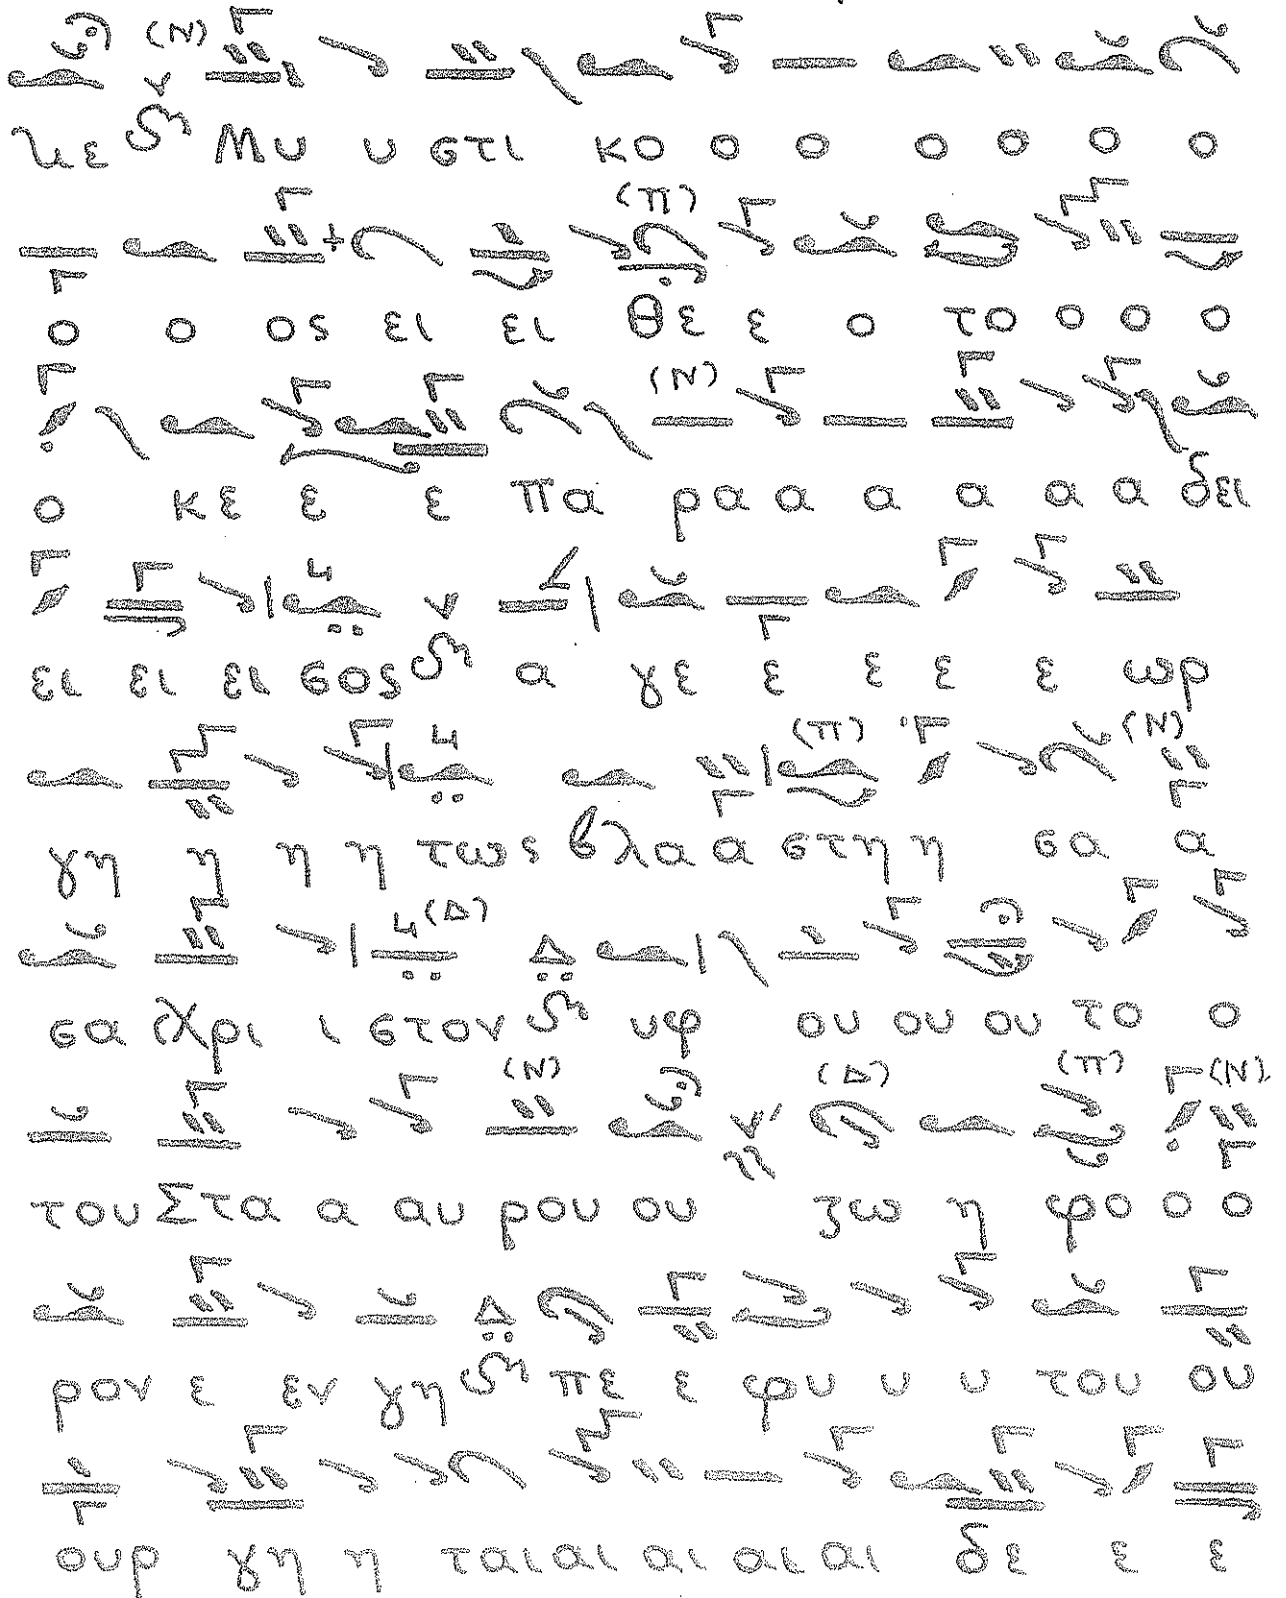 (Ν)
κε Μυ υ στι κο ο ο ο ο ο ο
(Π)
ο ο ος ει ει Θε ε ο το ο ο ο
(Ν)
ο κε ε ε πα ρα α α α α α δει
ει ει ει σος α γε ε ε ε ε ωρ
(Π) (Ν)
γη η η η τως βλα α στη η σα α
(Δ) Δ
σα Χρι ι στον υφ ου ου ου το ο
(Ν) (Δ) (Π) (Ν)
του Στα α αυ ρου ου ζω η φο ο ο
Δ
ρον ε εν γη πε ε φυ υ υ του ου
ουρ γη η ται αι αι αι αι δε ε ε